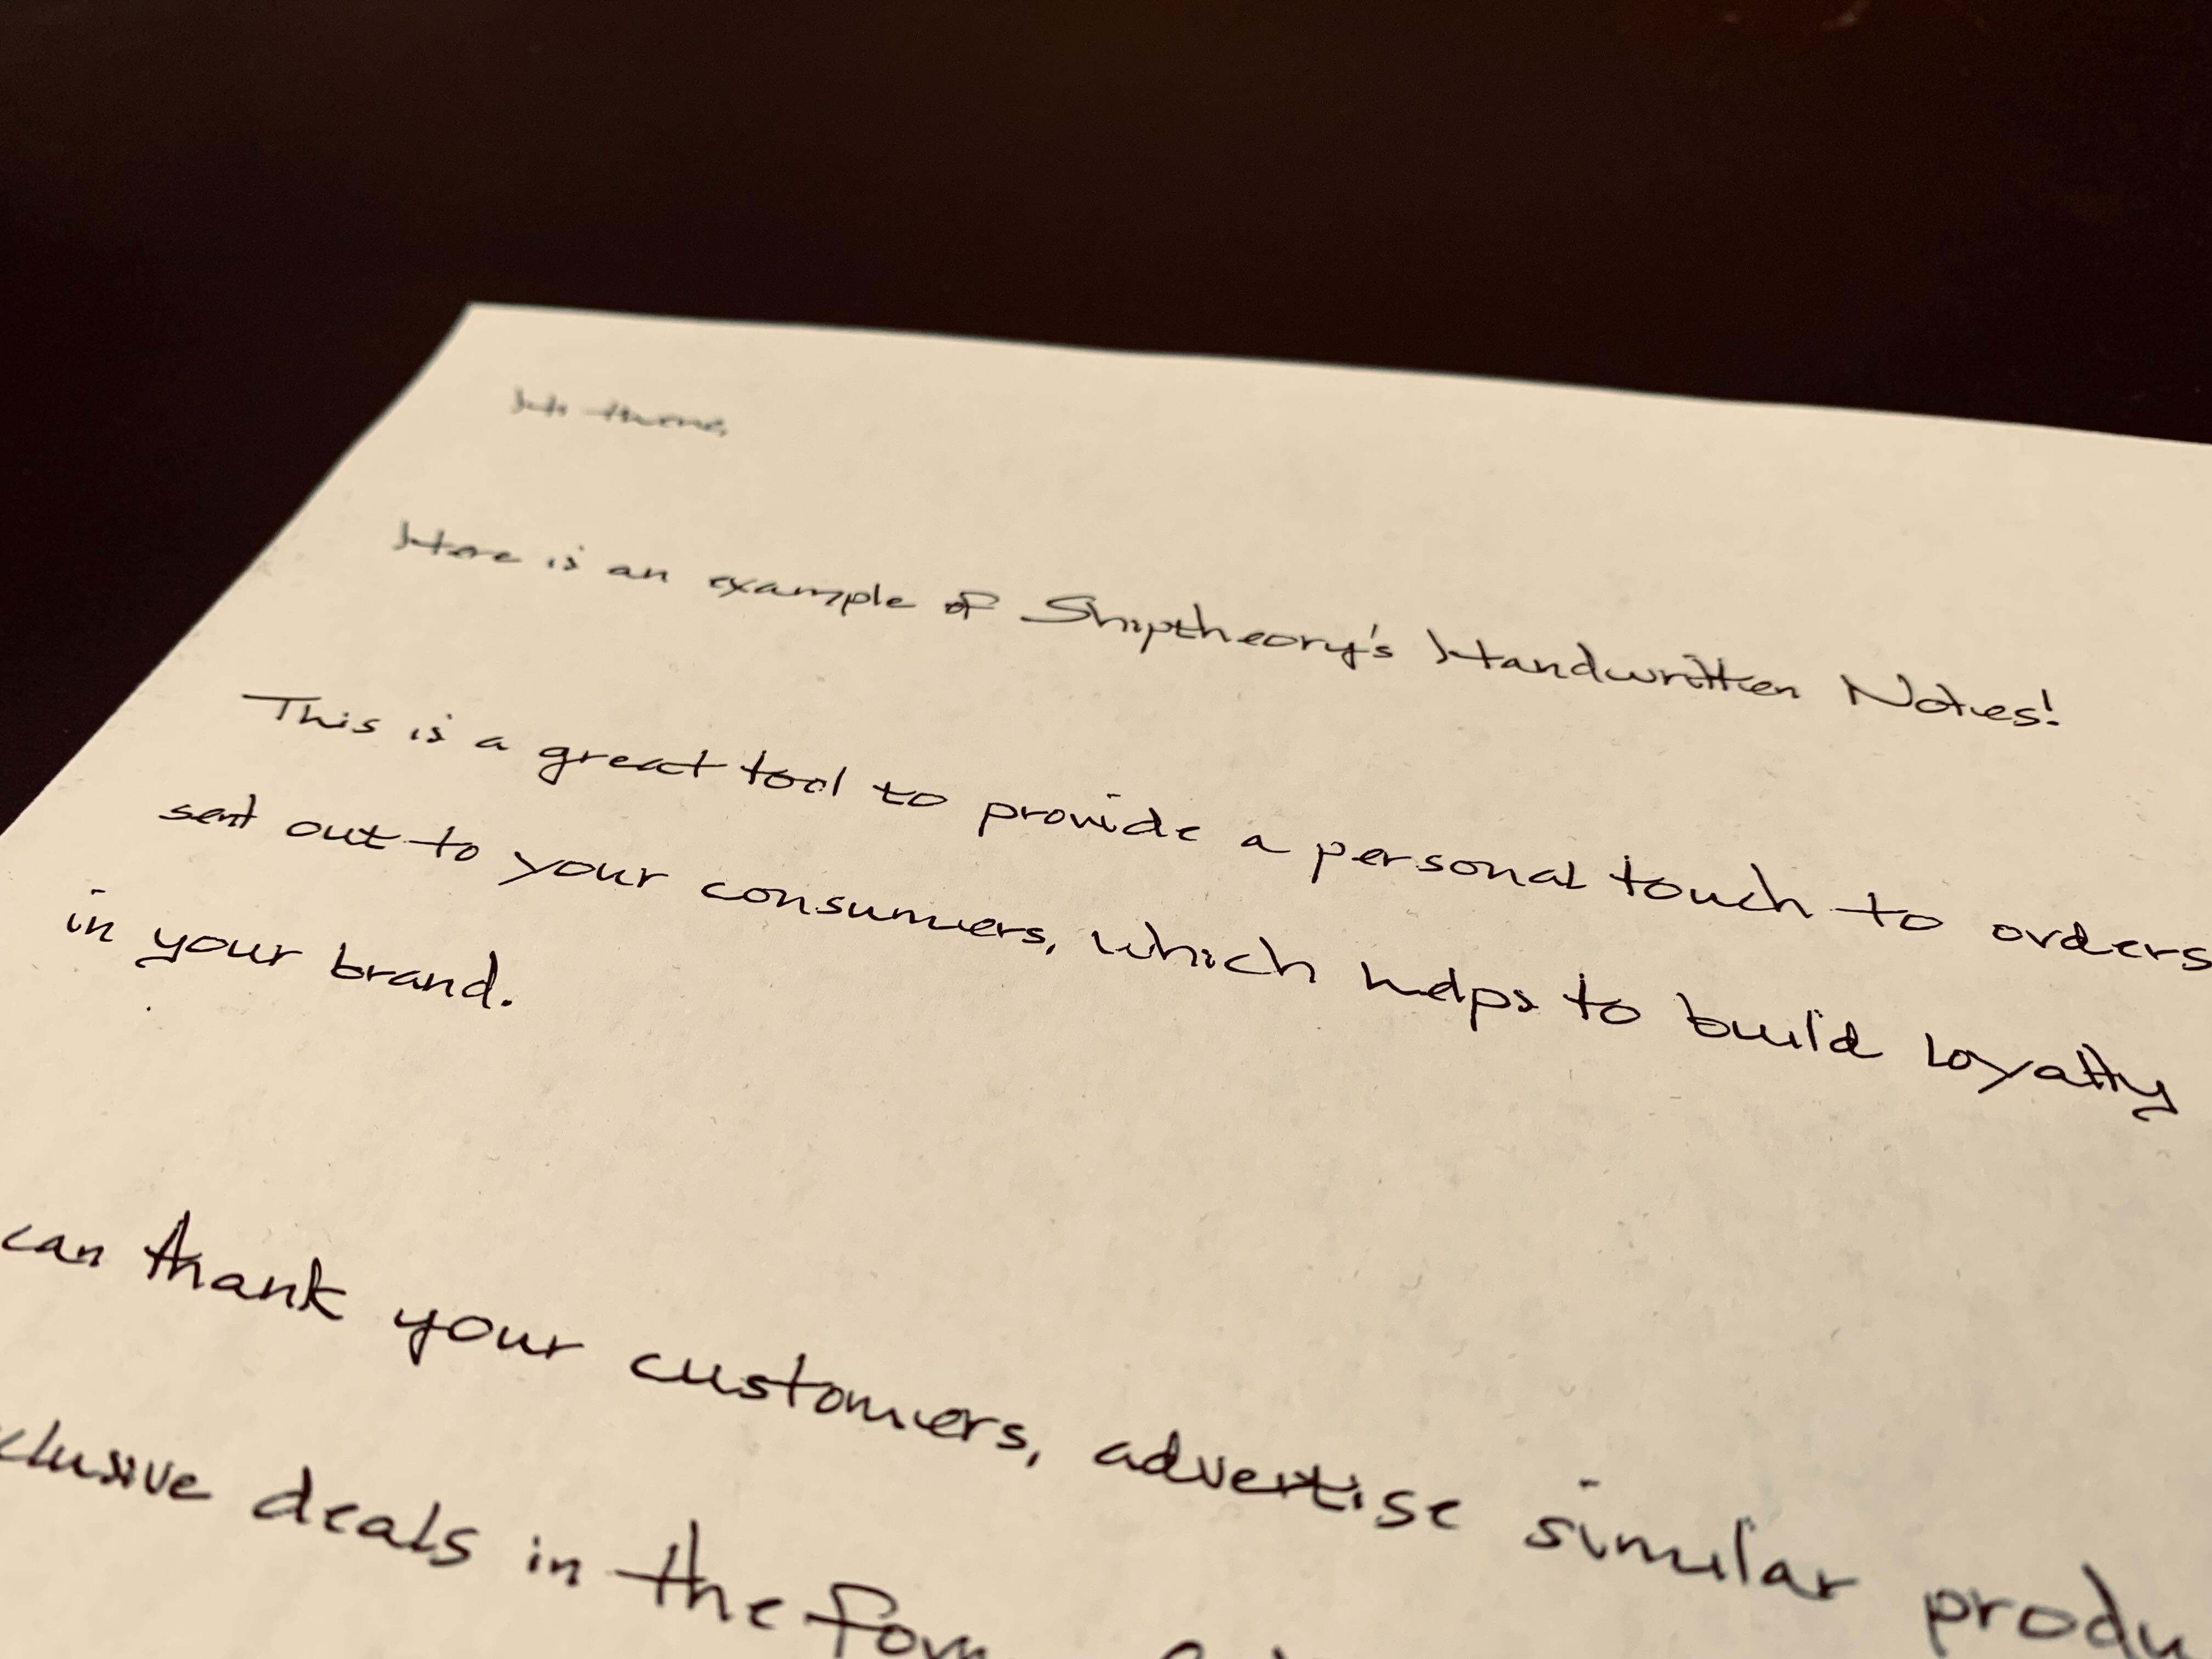 Hi there,
Here is an example of Shiptheory's Handwritten Notes!
This is a great tool to provide a personal touch to orders
sent out to your consumers, which helps to build loyalty
in your brand.
can thank your customers, advertise similar produ
clusive deals in the form